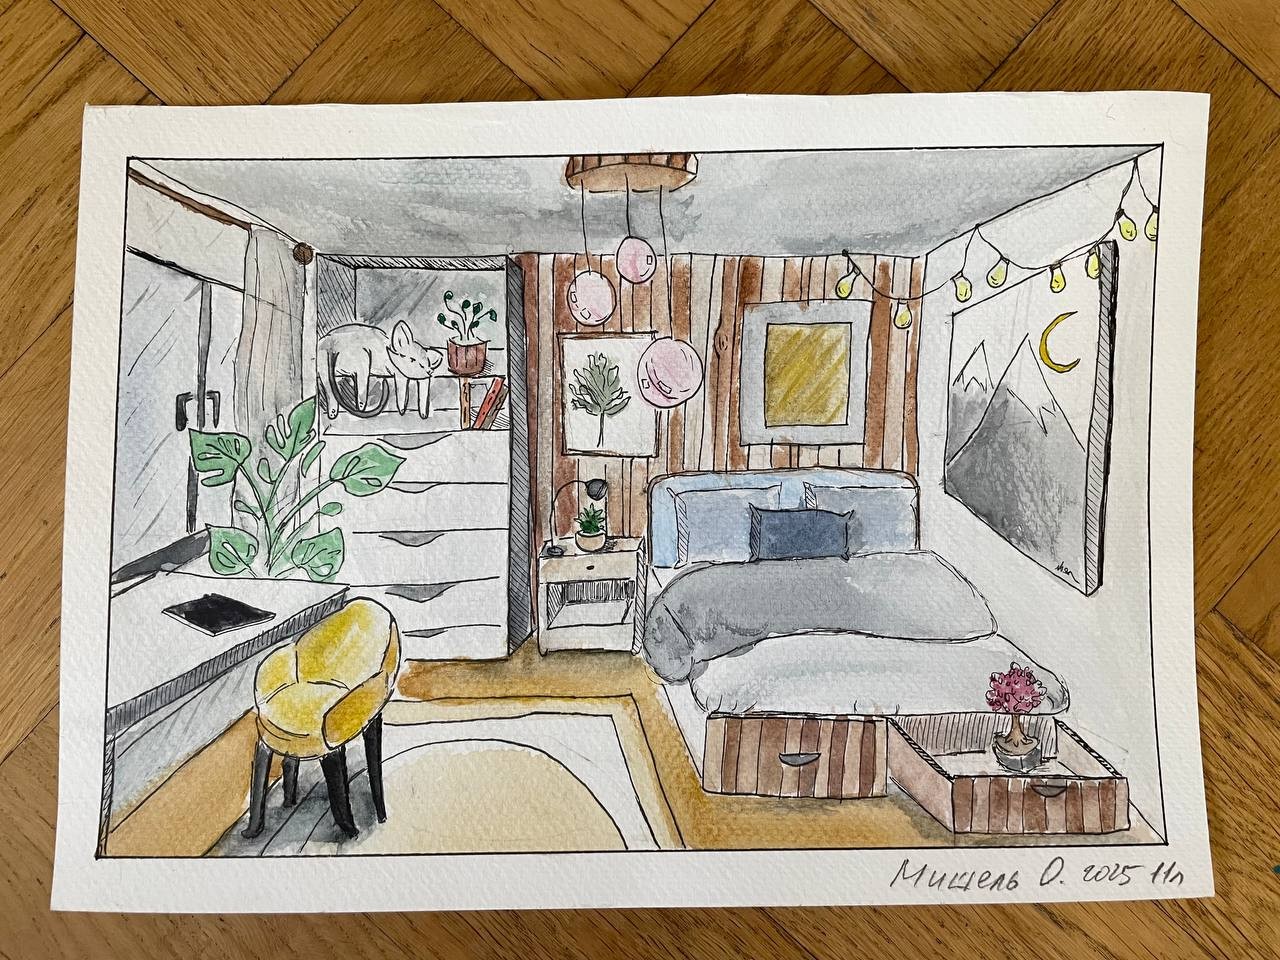 Мишель О. 2025 11л